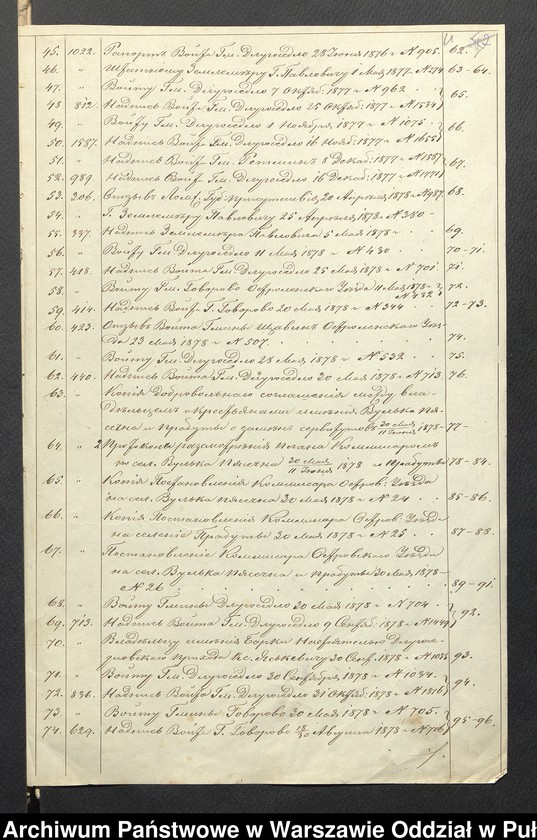 45. 1022. Рапортъ Войта Гм. Длугоседло 28 Июня 1876 г. N 905. 62.
46. " Земелемѣру Г. Павловичу 1 Мая 1877 63-64.
47. " Войту Гм. Длугоседло 7 Окт. 1877 г. N 962
48 812. Надпись Войта Гм. Длугоседло 25 Окт. 1877 г. N 1534 65.
49. " Войту Гм. Длугоседло 1 Ноября 1877 г. N 1075 -
50. 1587. Надпись Войта Гм. Длугоседло 16 Нояб: 1877 г. N 1655 66.
51. " Надпись Войта Гм. 8 Декаб: 1877 г. N 1587
52. 989. Надпись Войта Гм. Длугоседло 16 Декаб: 1877 г. 67.
53. 306. Отзывъ Лом. Губ. Присутствія, 20 Апреля 1878 г. N 987. 68.
54. " Г. Землемѣру Павловичу 25 Апреля 1878. N 380 -
55. 387. Надпись Землемѣра Павловича 5 Мая 1878 г. 69.
56. " Войту Гм. Длугоседло 11 Мая 1878 г. N 430 70-71.
57. 418. Надпись Войта Гм. Длугоседло 25 Мая 1878 г. N 701 71.
58. " Войту Гм. Говорово Остроленскаго Уѣзда 11 Мая 1878 г.
N 432 72.
59. 414. Надпись Войта Г. Говорово 20 Мая 1878 г. N 344 72-73.
60. 423. Отзывъ Войта Гмины Щавинъ Остроленскаго Уѣз-
да 23 мая 1878 г. N 507. 74.
61. " Войту Гм. Длугоседло 28 Мая 1878 г. N 532 75.
62. 440. Надпись Войта Гм. Длугоседло 20 Мая 1878 г. N 713. 76.
63. " Копія Добровольнаго соглашенія между вла-
дѣльцемъ и крестьянами имѣнія Вулька Пя-
сечна и Прабуты о замѣнѣ сервитутовъ 30 Мая/11 Іюня 1878 - 77-
64. " 2 Протокола разсмотрѣнія Коммисаромъ
по сел. Вулька Пясечна 30 Мая/11 Іюня 1878 и Прабуты 78-84.
65. " Копія Постановленія Коммисара Остров. Уѣзда
на сел. Вулька Пясечна 30 Мая 1878 г. N 24 85-86.
66. " Копія Постановленія Коммисара Остров: Уѣзда
на селеніе Прабуты 30 Мая 1878 г. N 25 87-88.
67. " Постановленіе Коммисара Островскаго Уѣзда
на сел. Вулька Пясечна и Прабуты 30 Мая 1878 -
N 26 89-91.
68. " Войту Гмины Длугоседло 30 Мая 1878 г. N 704
69. 713. Надпись Войта Гм. Длугоседло 9 Сент. 1878 г. 92.
70. " Владѣльцу имѣнія Настоятелю Длуго-
седловскаго прихода Кс. 30 Сент. 1878 г. 93.
71. " Войту Гм. Длугоседло 30 Сентября 1878 г. N 1034.
72. 836. Надпись Войта Гм. Длугоседло 31 Окт. 1878 г. N 1816 94.
73. " Войту Гмины Говорово 30 Мая 1878 г. N 705.
74. 629. Надпись Войта Г. Говорово Августа 1878 г. N 706 95-96.
Archiwum Państwowe w Warszawie Oddział w Puł